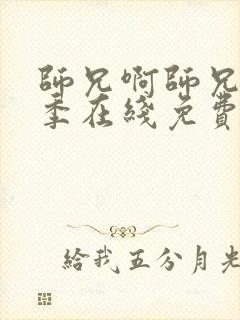 師兄啊師兄
季在綫免費
給我五分月光